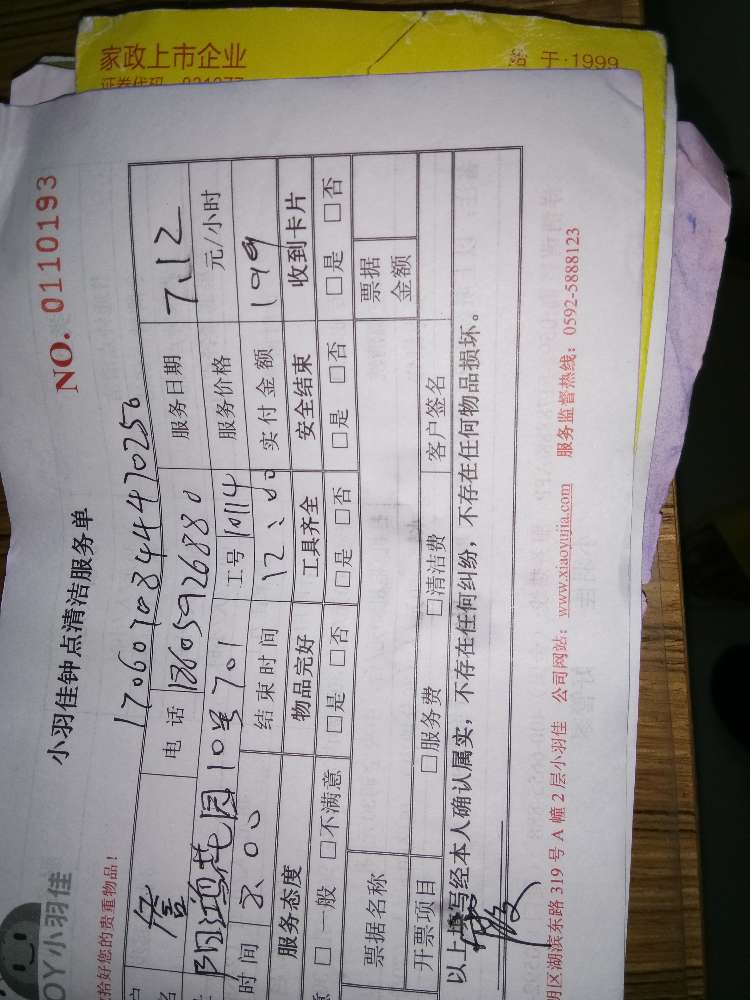 家政上市企业
始于·1999
NO. 0110193
小羽佳钟点清洁服务单
OY小羽佳
拾好您的贵重物品！
1706070844470250
詹 电话 13605926880 服务日期 7.12
阳鸿花园10号701 工号 10114 服务价格 元/小时
时间 8:00 结束时间 12:00 实付金额 199
服务态度 物品完好 工具齐全 安全结束 收到卡片
□一般 □不满意 □是 □否 □是 □否 □是 □否 □是 □否
票据名称 票据金额
开票项目 □服务费 □清洁费 客户签名
以上填写经本人确认属实，不存在任何纠纷，不存在任何物品损坏。
明区湖滨东路 319 号 A 幢 2 层小羽佳 公司网站：www.xiaoyujia.com 服务监督热线：0592-5888123